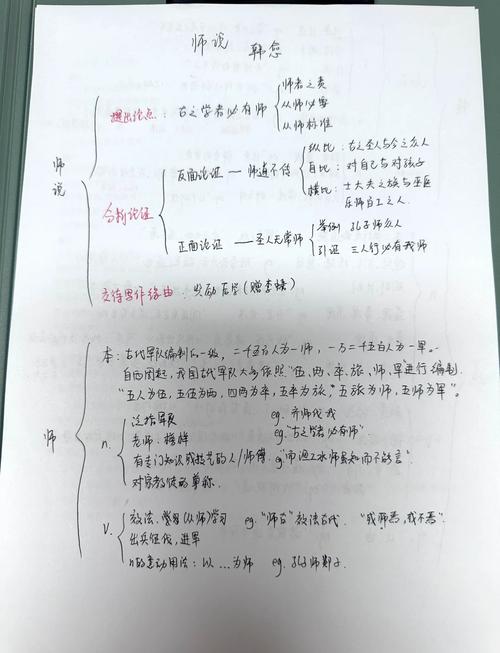 师说 韩愈
师说
提出论点：古之学者必有师
师者之责
从师必要
从师标准
分析论证
反面论证 — 师道不传
纵比：古之圣人与今之众人
自比：对自己与对孩子
横比：士大夫之族与巫医
乐师百工之人
正面论证 — 圣人无常师
举例 孔子师众人
引证 三人行必有我师
交待写作缘由：奖励后学（赠李蟠）
师
本：古代军队编制的一级，二千五百人为一师，一万二千五百人为一军。
自西周起，我国古代军队大多依照“伍、两、卒、旅、师、军”进行编制.
“五人为伍，五伍为两，四两为卒，五卒为旅，五旅为师，五师为军”。
n.
泛指军队 eg. 齐师伐我
老师. 榜样 eg.“古之学者必有师”
有专门知识或技艺的人/师傅. eg“而渔工水师虽知而不能言”.
对宗教徒的尊称.
v.
效法、(从师)学习 eg.“师古”效法古代. “或师焉，或不焉”.
出兵征伐，进军
n的意动用法：以…为师 eg. 孔子师郯子.